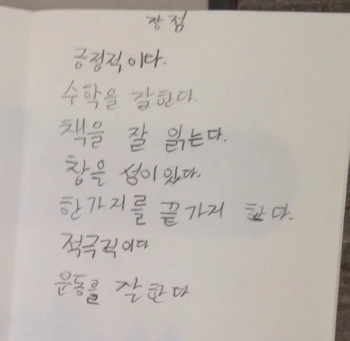 장점
긍정적이다.
수학을 잘한다.
책을 잘 읽는다.
참을 성이있다.
한가지를 끝가지 한다.
적극적이다
운동을 잘한다